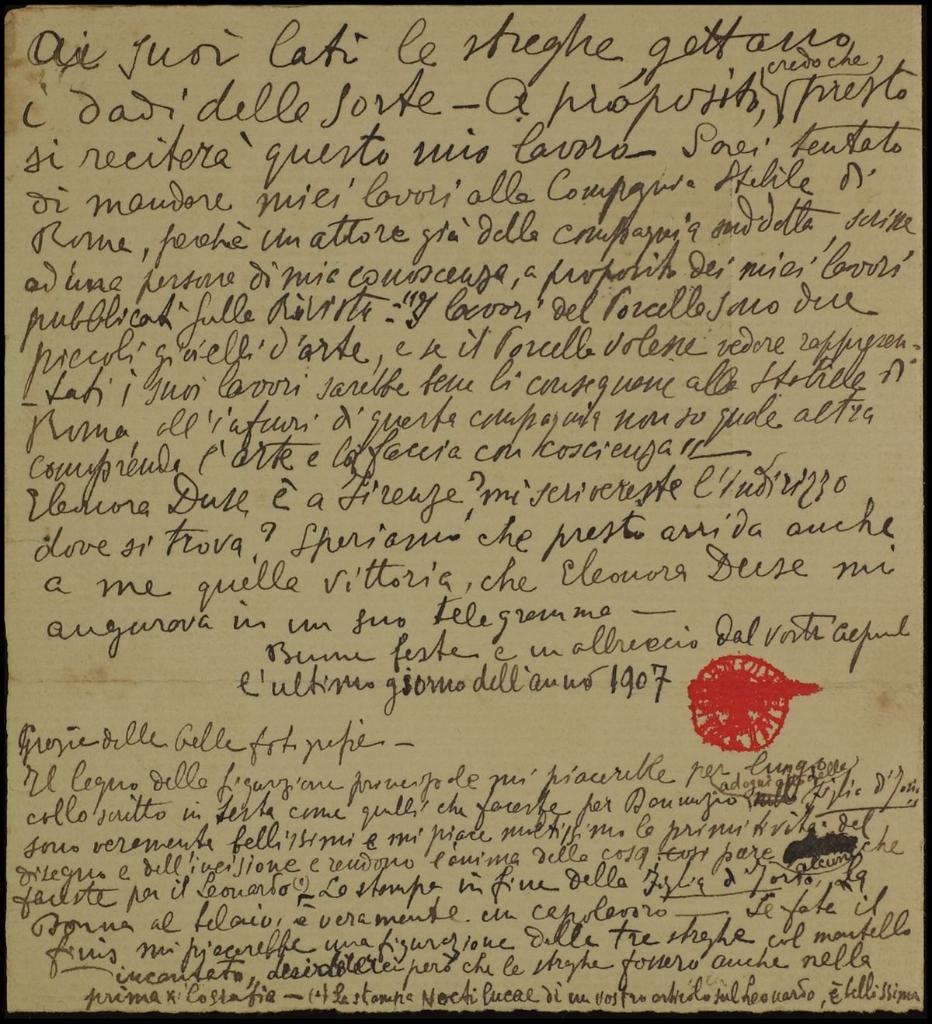 Ai suoi lati le streghe gettano
credo che
i dadi della sorte — A proposito, presto
si reciterà questo mio lavoro — Sarei tentato
di mandare miei lavori alla Compagnia Stabile di
Roma, perchè un attore già della compagnia suddetta, scrisse
ad una persona di mia conoscenza, a proposito dei miei lavori
pubblicati sulla Rivista: "I lavori del Porcella sono due
piccoli gioielli d'arte, e se il Porcella volesse vedere rappresen-
-tati i suoi lavori sarebbe bene li consegnasse alla Stabile di
Roma, all'infuori di questa compagnia non so quale altra
comprenda l'arte e la faccia con coscienza"
Eleonora Duse è a Firenze? mi scrivereste l'indirizzo
dove si trova? Speriamo che presto arrida anche
a me quella vittoria, che Eleonora Duse mi
augurava in un suo telegramma —
Buone feste e un abbraccio dal vostro
l'ultimo giorno dell'anno 1907
Grazie delle belle fotografie —
Il legno della figurazione principale mi piacerebbe per lungo
collo scritto in testa come quelli che faceste per Dannunzio Figlia d'Iorio
sono veramente bellissimi e mi piace moltissimo la primitività del
disegno e dell'incisione e rendono l'anima della cosa, così pare alcuni che
faceste per il Leonardo (*) La stampa in fine della Figlia d'Iorio, La
Donna al telaio, è veramente un capolavoro — Se fate il
finis mi piacerebbe una figurazione delle tre streghe col mantello
incantato, desidererei però che le streghe fossero anche nella
prima xilografia — (*) La stampa Noctilucae di un vostro articolo sul Leonardo, è bellissima